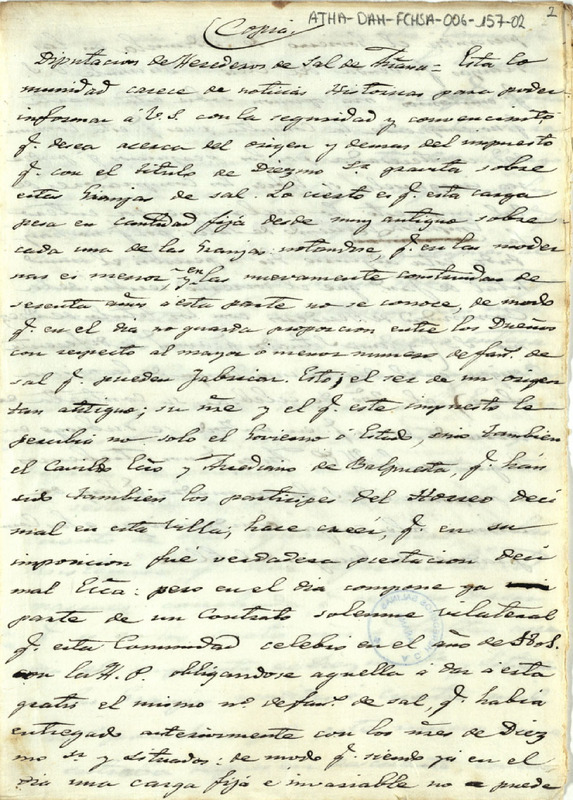 Copia
AJHA-DAH-FCHSA-006-157-02
2
Diputacion de Herederos de Sal de Añana = Esta Co
munidad carece de noticias Historicas para poder
informar á V.S. con la seguridad y convencimto
q. desea acerca del origen y demas del impuesto
q. con el titulo de Diezmo Sr gravita sobre
estas Granjas de sal. Lo cierto es q. esta carga
pesa en cantidad fija desde muy antiguo sobre
cada una de las Granjas notandose, q. en las moder
nas es menor, y en las nuevamente construidas de
sesenta años á esta parte no se conoce, de modo
q. en el dia no guarda proporcion entre los Dueños
con respecto al mayor ó menor numero de fans. de
sal q. pueden fabricar. Esto, el ser de un origen
tan antiguo; su nre y el q. este impuesto le
percibia no solo el Govierno ó Estado, sino tambien
el Cavildo Ecco y Arcediano de Balpuesta, q. han
sido tambien los participes del Acerbo deci
mal en esta Villa; hace creér, q. en su
imposicion fué verdadera prestacion deci
mal Ecca: pero en el dia compone ya
parte de un Contrato solemne vilateral
q. esta Comunidad celebró en el año de
con la H. P. obligandose aquella á dar á esta
gratis el mismo no. de fans. de sal, q. habia
entregado anteriormente con los nres de Diez
mo Sr y situados: de modo q. siendo ya en el
dia una carga fija é invariable no puede